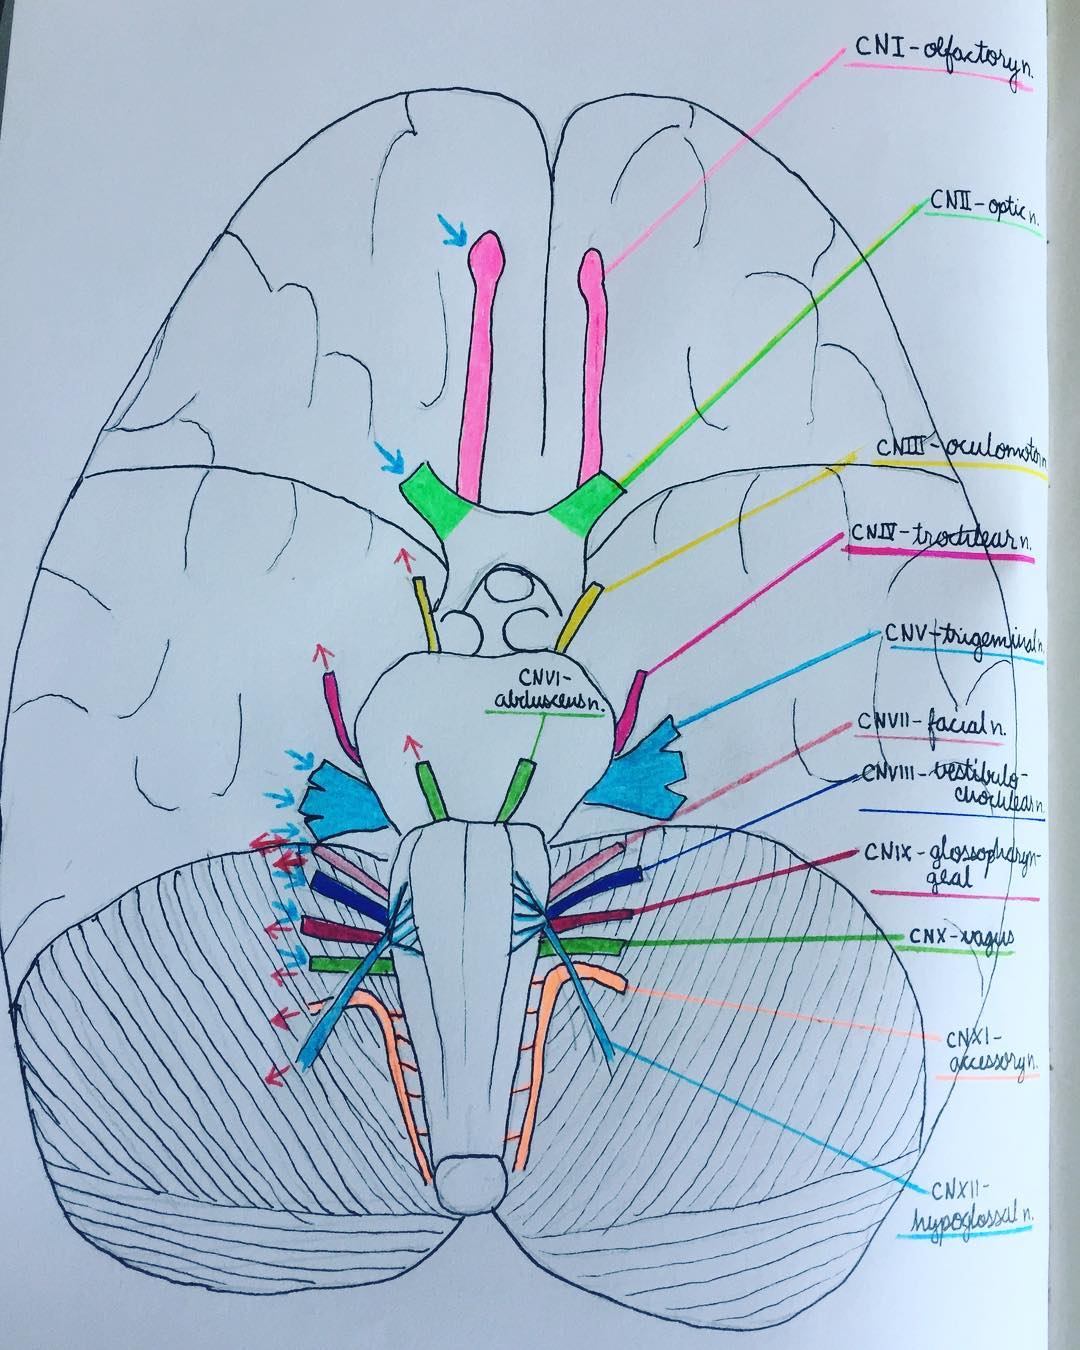 CNI-olfactory n.
CNII-optic n.
CNIII-oculomotor n.
CNIV-trochlear n.
CNV-trigeminal n.
CNVI-
abduscens n.
CNVII-facial n.
CNVIII-vestibulo-
chochlear n.
CNIX-glossopharyn-
geal
CNX-vagus
CNXI-
accessory n.
CNXII-
hypoglossal n.